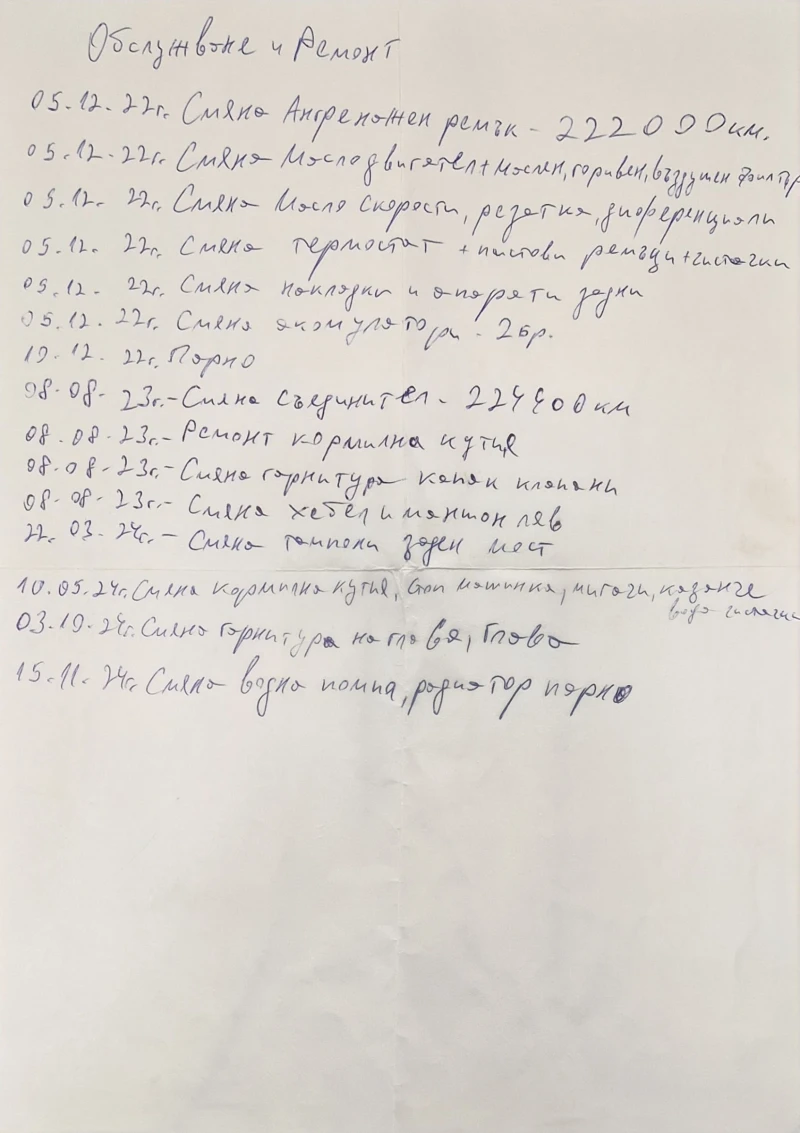 Обслужване и Ремонт
05.12.22г. Смяна Ангренажен ремък - 222000км.
05.12.22г. Смяна Масло двигател + маслен, горивен, въздушен филтър
05.12. 22г. Смяна Масло скорости, резатка, диференциали
05.12. 22г. Смяна термостат + пистови ремъци + чистачки
05.12. 22г. Смяна накладки и апарати задни
05.12.22г. Смяна акомулатори - 2бр.
10.12.22г. Парно
08.08.23г. - Смяна съединител - 224400км
08.08.23г. - Ремонт кормилна кутия
08.08.23г. - Смяна гарнитура капак клапани
08.08.23г. - Смяна хебел и маншон ляв
22.03.24г. - Смяна тампони заден мост
10.05.24г. Смяна кормилна кутия, стоп машинка, мигачи, казанче
вода чистачки
03.10.24г. Смяна гарнитура на глава, Глава
15.11.24г. Смяна водна помпа, радиатор парно